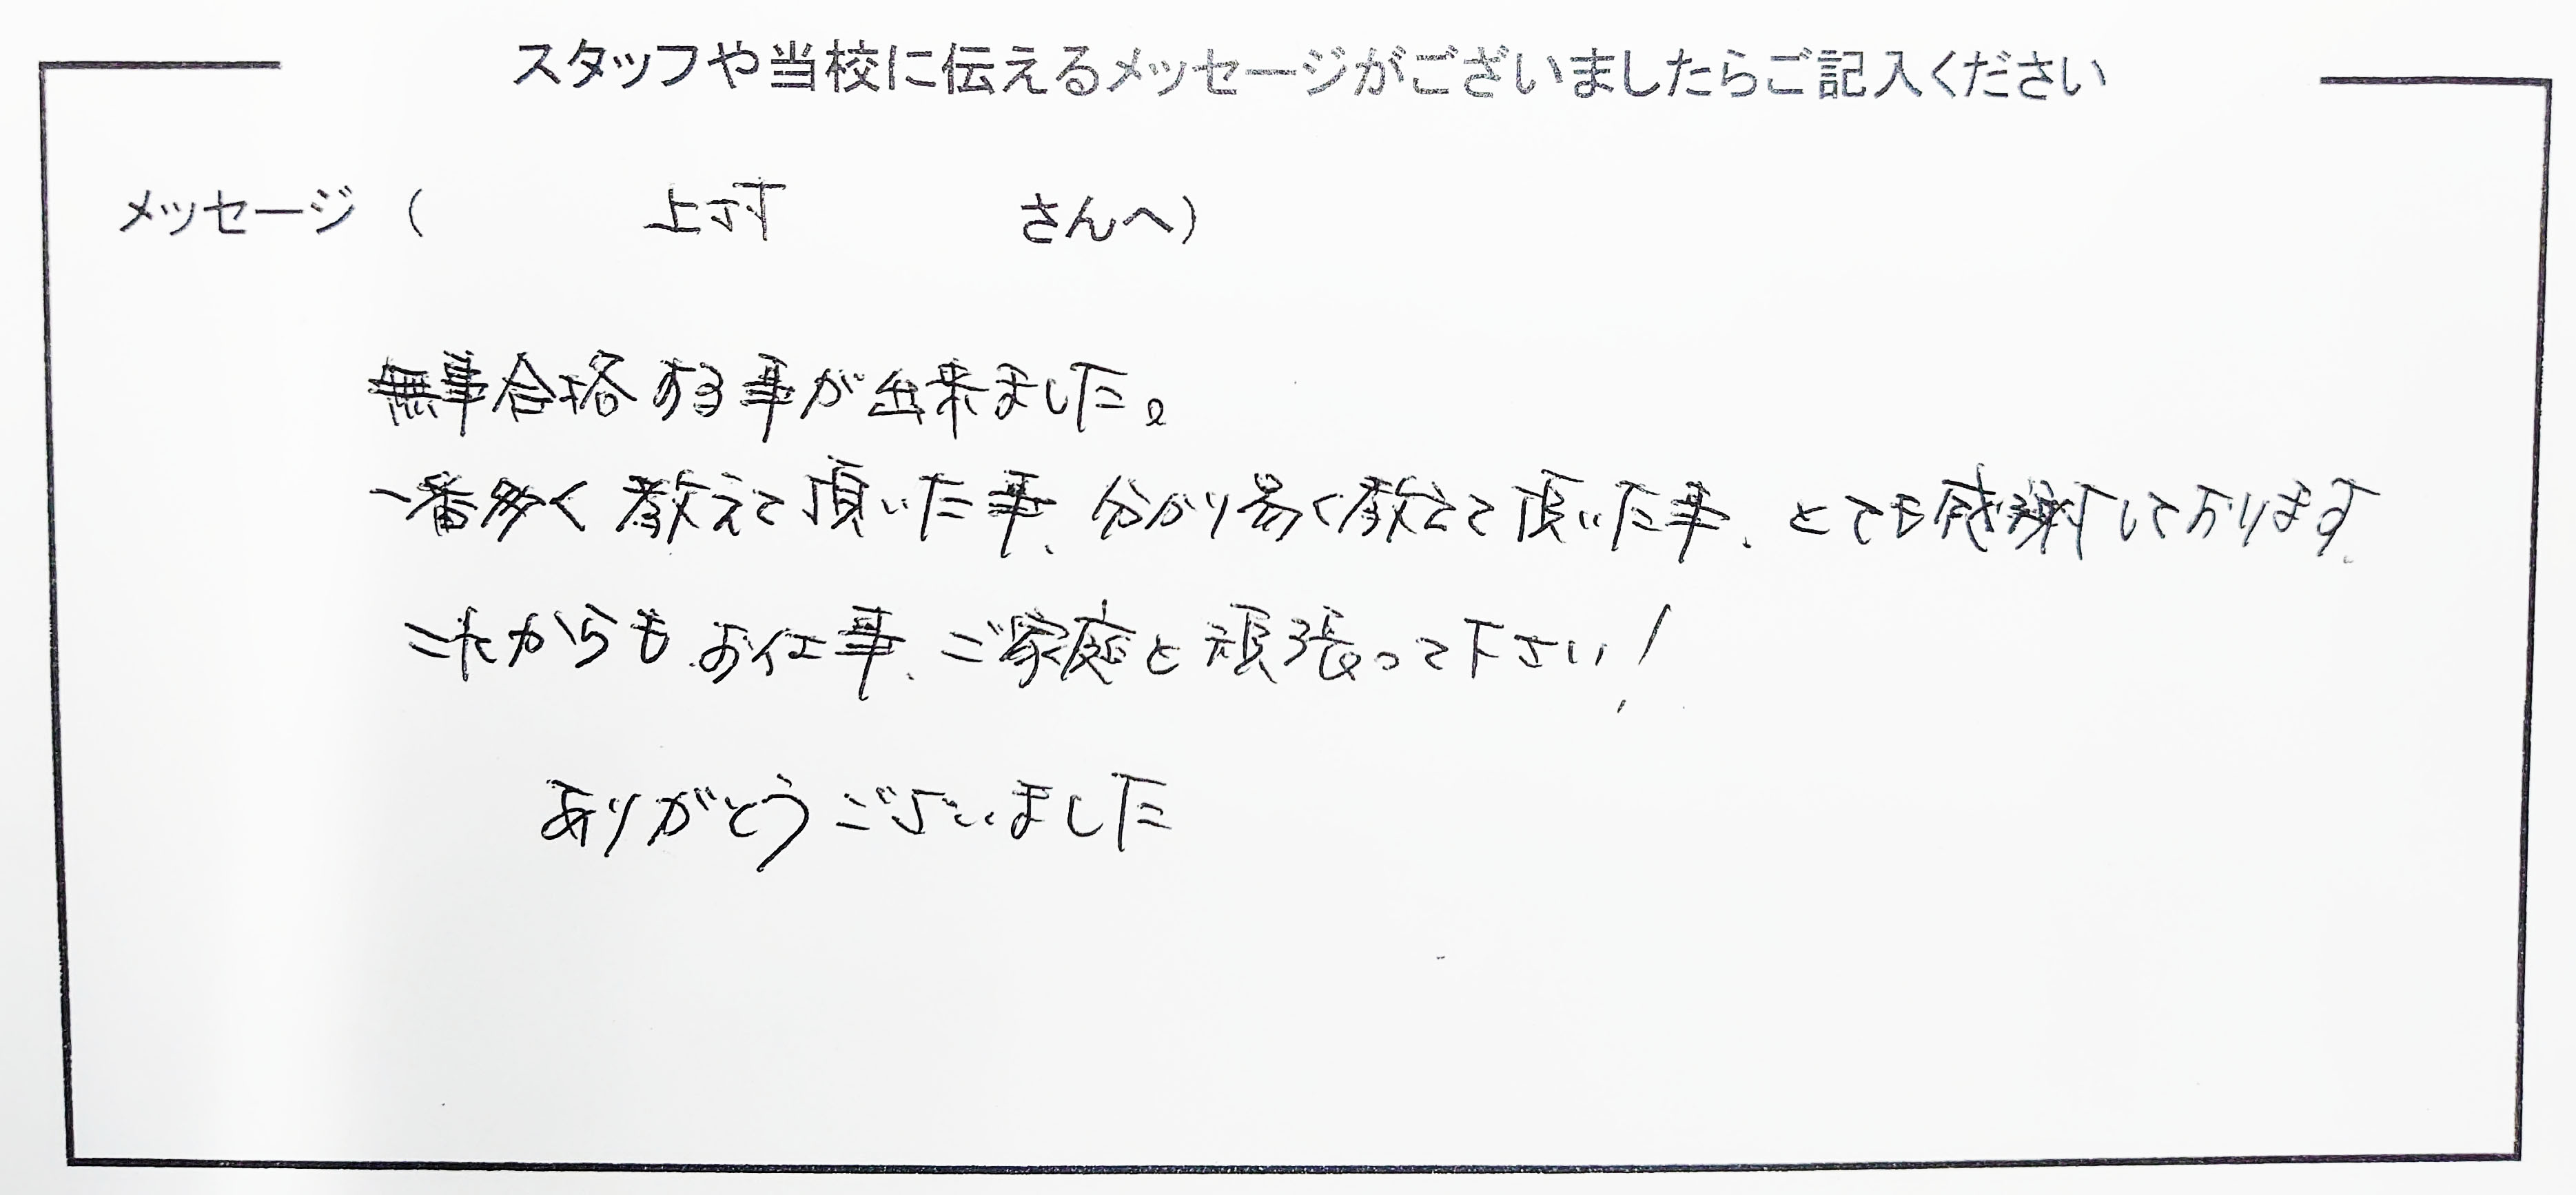 スタッフや当校に伝えるメッセージがございましたらご記入ください
メッセージ（ 上村 さんへ）
無事合格する事が出来ました。
一番多く教えて頂いた事、分かり易く教えて頂いた事、とても感謝しております。
これからもお仕事、ご家庭と頑張って下さい!
ありがとうございました